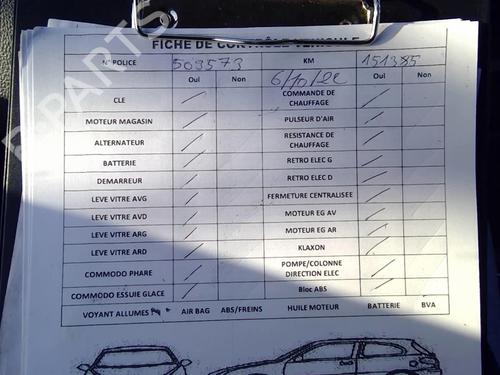 FICHE DE CONTRÔLE VEHICULE
N° POLICE 503573 KM 151385
Oui Non 6/10/22 Oui Non
CLE COMMANDE DE CHAUFFAGE
MOTEUR MAGASIN PULSEUR D'AIR
ALTERNATEUR RESISTANCE DE CHAUFFAGE
BATTERIE RETRO ELEC G
DEMARREUR RETRO ELEC D
LEVE VITRE AVG FERMETURE CENTRALISEE
LEVE VITRE AVD MOTEUR EG AV
LEVE VITRE ARG MOTEUR EG AR
LEVE VITRE ARD KLAXON
COMMODO PHARE POMPE/COLONNE DIRECTION ELEC
COMMODO ESSUIE GLACE Bloc ABS
VOYANT ALLUMES AIR BAG ABS/FREINS HUILE MOTEUR BATTERIE BVA
B-PARTS